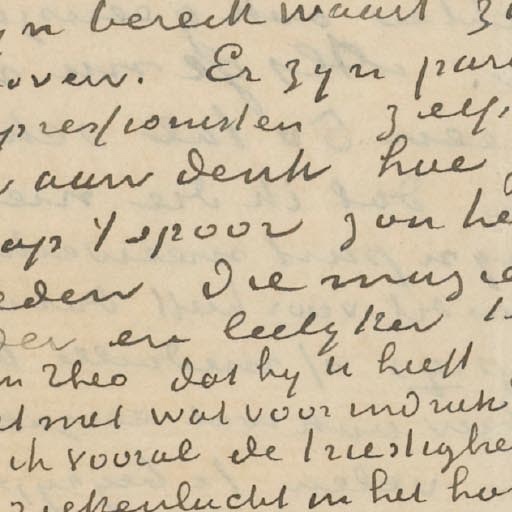 yn bereik waart
oven. Er zyn par
pressionisten zelf
aan denk hoe
op 't spoor zou he
eden die muzie
der en leelyker
n Theo dat hy 't heeft
et met wat voor indruk
ik vooral de triestighe
ziekenlucht in het ho